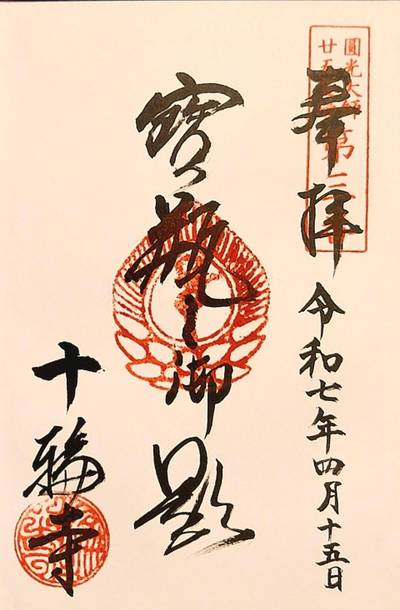 圓光大師
廿五
第三
奉拝
令和七年四月十五日
寶瓶之御影
十輪寺